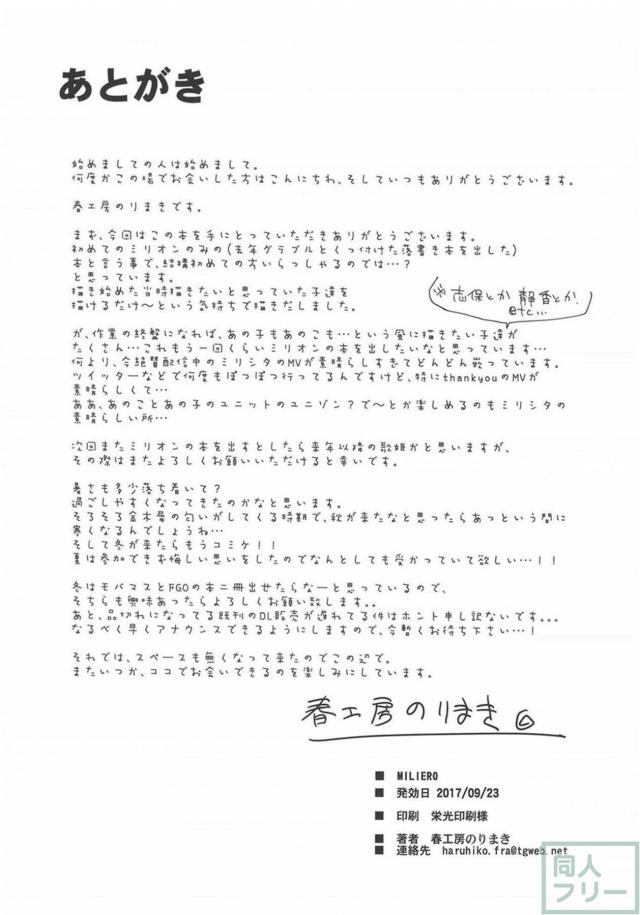 あとがき
始めましての人は始めまして。
何度かこの場でお会いした方はこんにちわ、そしていつもありがとうございます。
春工房のりまきです。
まず、今回はこの本を手にとっていただきありがとうございます。
初めてのミリオンのみの(去年グラブルとくっ付けた落書き本を出した)
本と言う事で、結構初めての方いらっしゃるのでは…?
と思っています。
描き始めた当時描きたいと思っていた子達を
描けるだけ～という気持ちで描きだしました。
※志保とか静香とか
etc...
が、作業の終盤になれば、あの子もあのこも…という風に描きたい子達が
たくさん…これもう一回くらいミリオンの本を出したいなと思っています…
何より、今絶賛配信中のミリシタのMVが素晴らしすぎてどんどん嵌っています。
ツイッターなどで何度もぼつぼつ行ってるんですけど、特にthankyouのMVが
素晴らしくて…
ああ、あのことあの子のユニットのユニゾン?で～とか楽しめるのもミリシタの
素晴らしい所…
次回またミリオンの本を出すとしたら来年以降の歌姫かと思いますが、
その際はまたよろしくお願いいただけると幸いです。
暑さも多少落ち着いて?
過ごしやすくなってきたのかなと思います。
そろそろ金木犀の匂いがしてくる時期で、秋が来たなと思ったらあっという間に
寒くなるんでしょうね…
そして冬が来たらもうコミケ!!
夏は参加できず悔しい思いをしたのでなんとしても受かっていて欲しい…!!
冬はモバマスとFGOの本二冊出せたらなーと思っているので、
そちらも興味あったらよろしくお願い致します。。
あと、品切れになってる既刊のDL販売が遅れてる件はホント申し訳ないです。。。
なるべく早くアナウンスできるようにしますので、今暫くお待ち下さい…!
それでは、スペースも無くなって来たのでこの辺で。
またいつか、ココでお会いできるのを楽しみにしています。
春工房のりまき
■ MILIERO
■ 発効日 2017/09/23
■ 印刷 栄光印刷様
■ 著者 春工房のりまき
■ 連絡先 haruhiko.fra@tgweb.net
同人
フリー